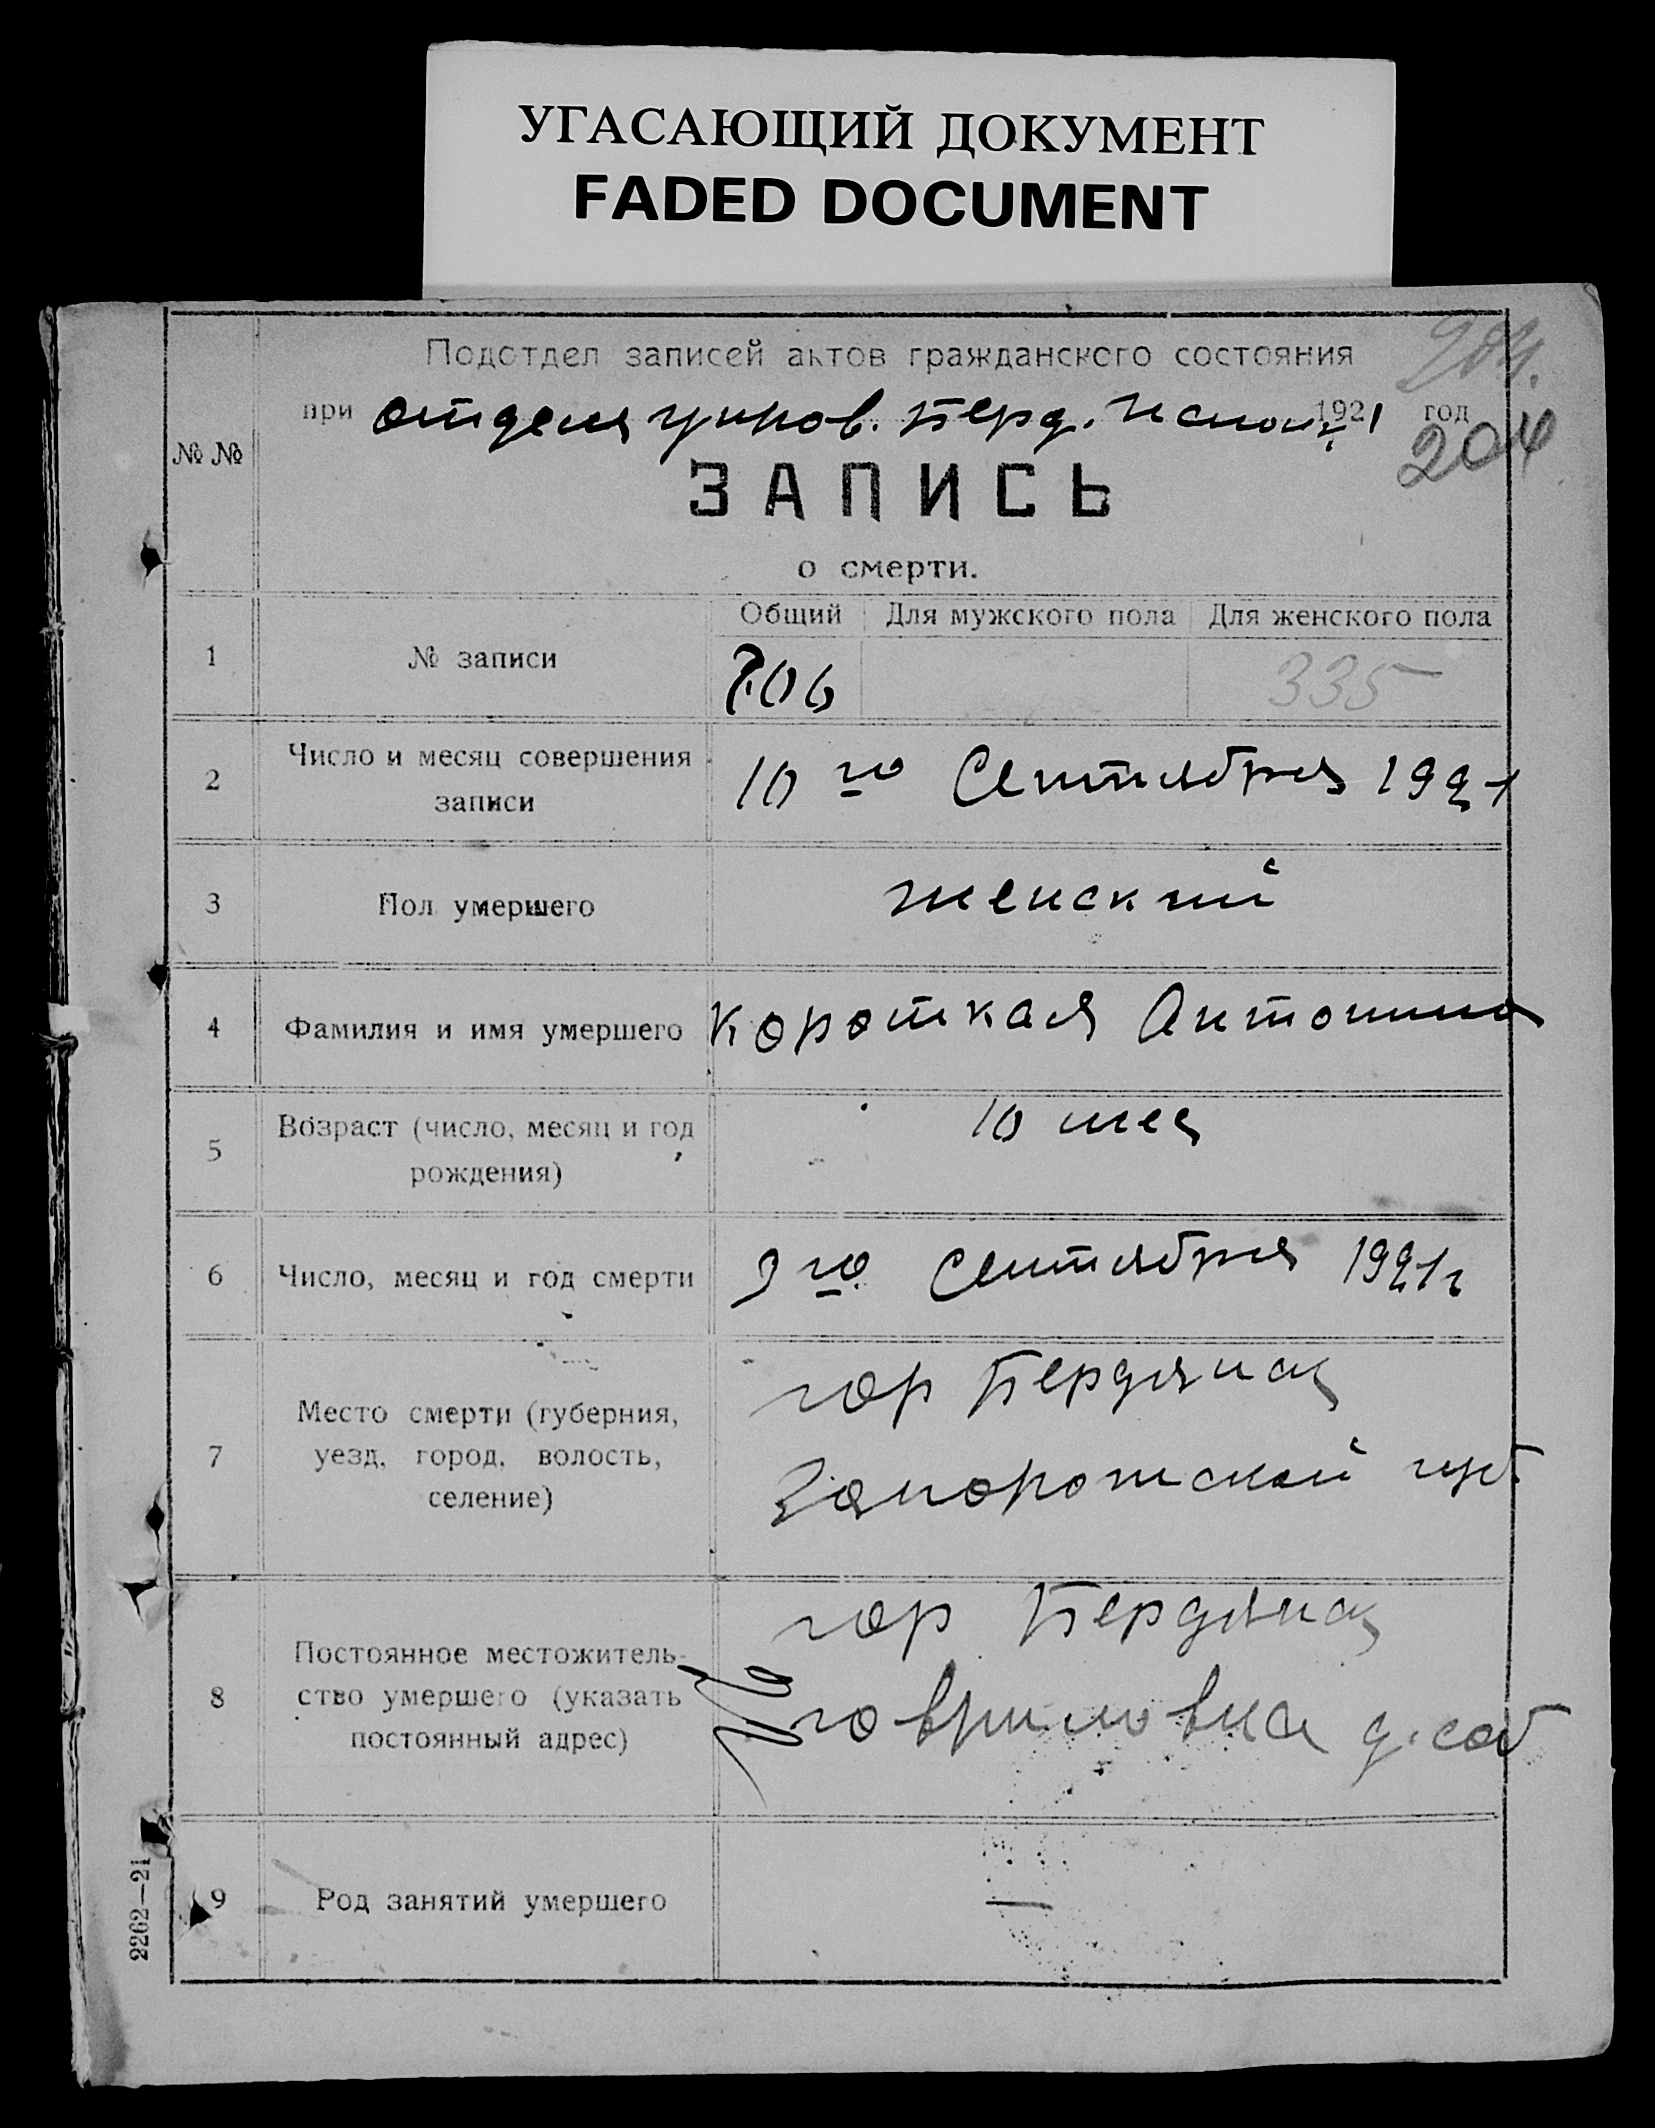 УГАСАЮЩИЙ ДОКУМЕНТ
FADED DOCUMENT
Подотдел записей актов гражданского состояния
при отделе управ. Берд. Исполк. 1921 год
204
№ №
ЗАПИСЬ
о смерти.
Общий Для мужского пола Для женского пола
1 № записи 706 335
2 Число и месяц совершения
записи
10 го Сентября 1921
3 Пол умершего женский
4 Фамилия и имя умершего Короткая Антонина
5 Возраст (число, месяц и год
рождения)
10 мес
6 Число, месяц и год смерти 9 го Сентября 1921 г
7 Место смерти (губерния,
уезд, город, волость,
селение)
гор Бердянск
Запорожской губ.
8 Постоянное местожитель-
ство умершего (указать
постоянный адрес)
гор Бердянск
д. соб
9 Род занятий умершего —
2262—21